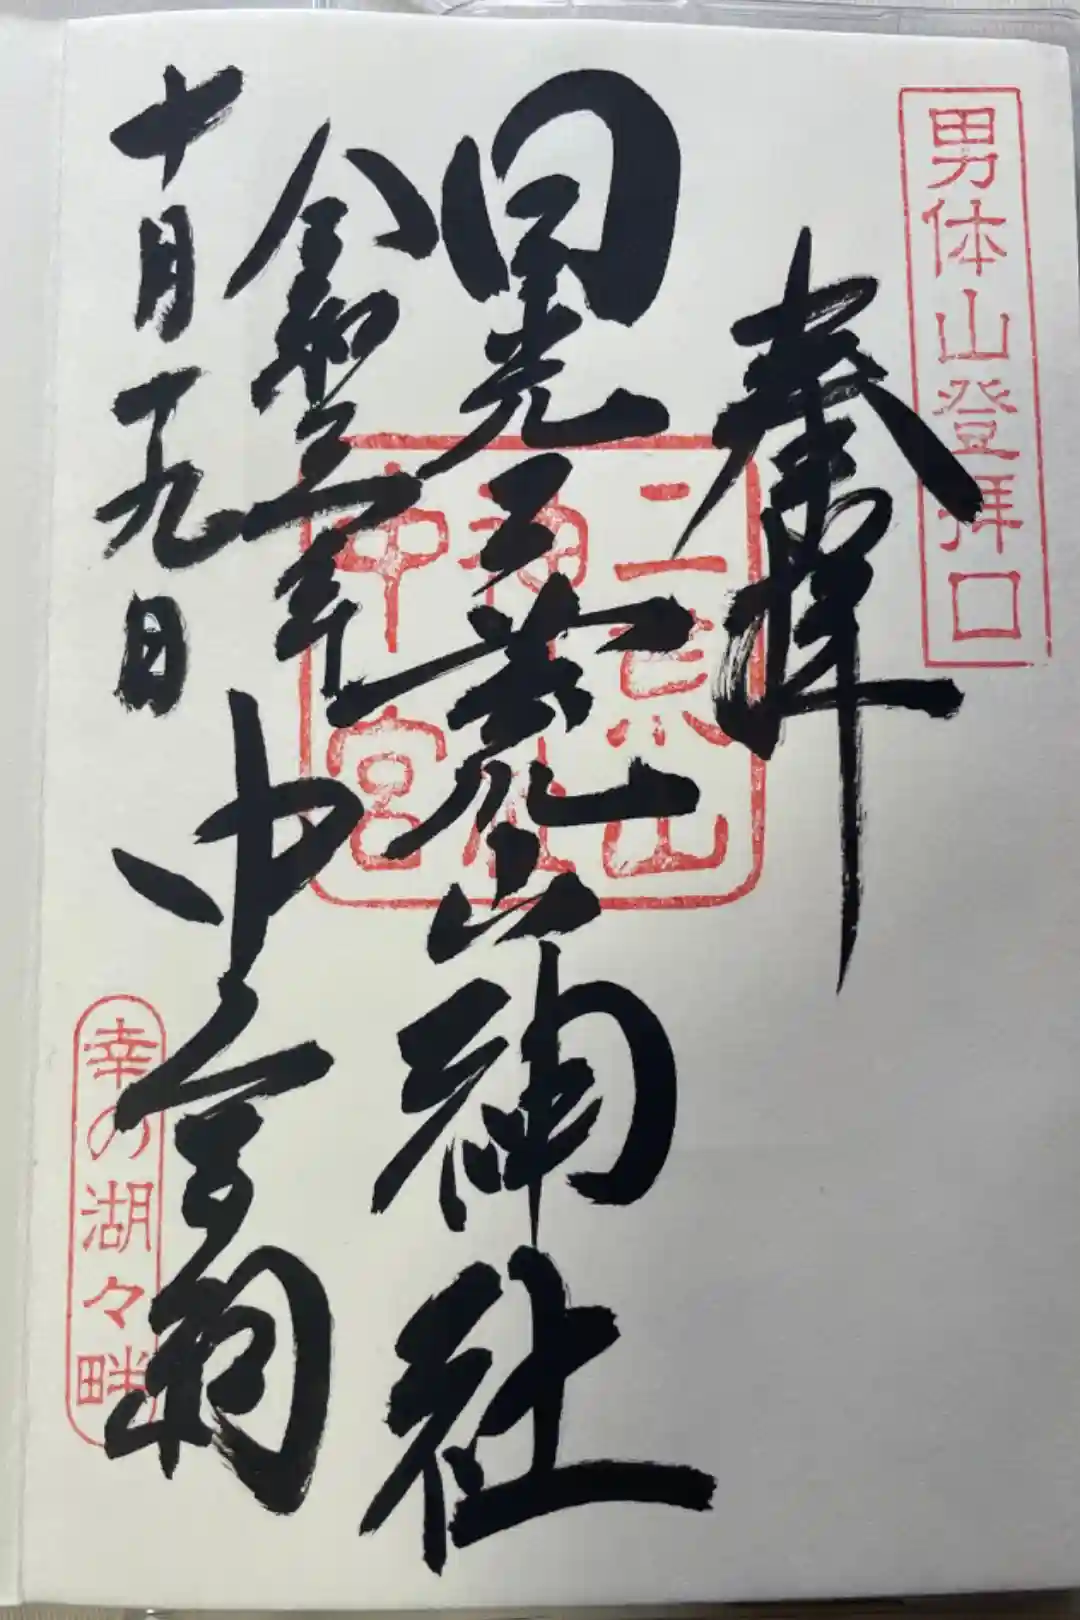 男体山登拝口
奉拝
二荒山
神社
中宮
日光二荒山神社
中宮祠
令和三年
十月十九日
幸の湖々畔